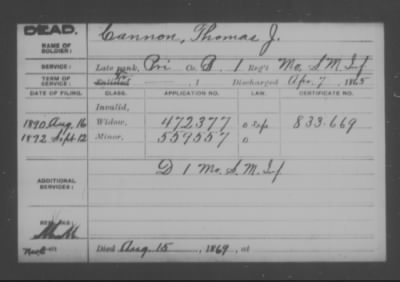 DEAD.
Cannon, Thomas J.
NAME OF SOLDIER:
SERVICE: Late rank, Pri Co. B, 1 Reg't Mo. S. M. Inf
TERM OF SERVICE: Enlisted , 1 Discharged Apr. 7, 1865
DATE OF FILING. CLASS. APPLICATION NO. LAW. CERTIFICATE NO.
Invalid,
1890 Aug. 16 Widow, 472377 833.669
1892 Sept. 12 Minor, 559557
ADDITIONAL SERVICES: D 1 Mo. S. M. Inf
REMARKS:
Died Aug. 15, 1869, at